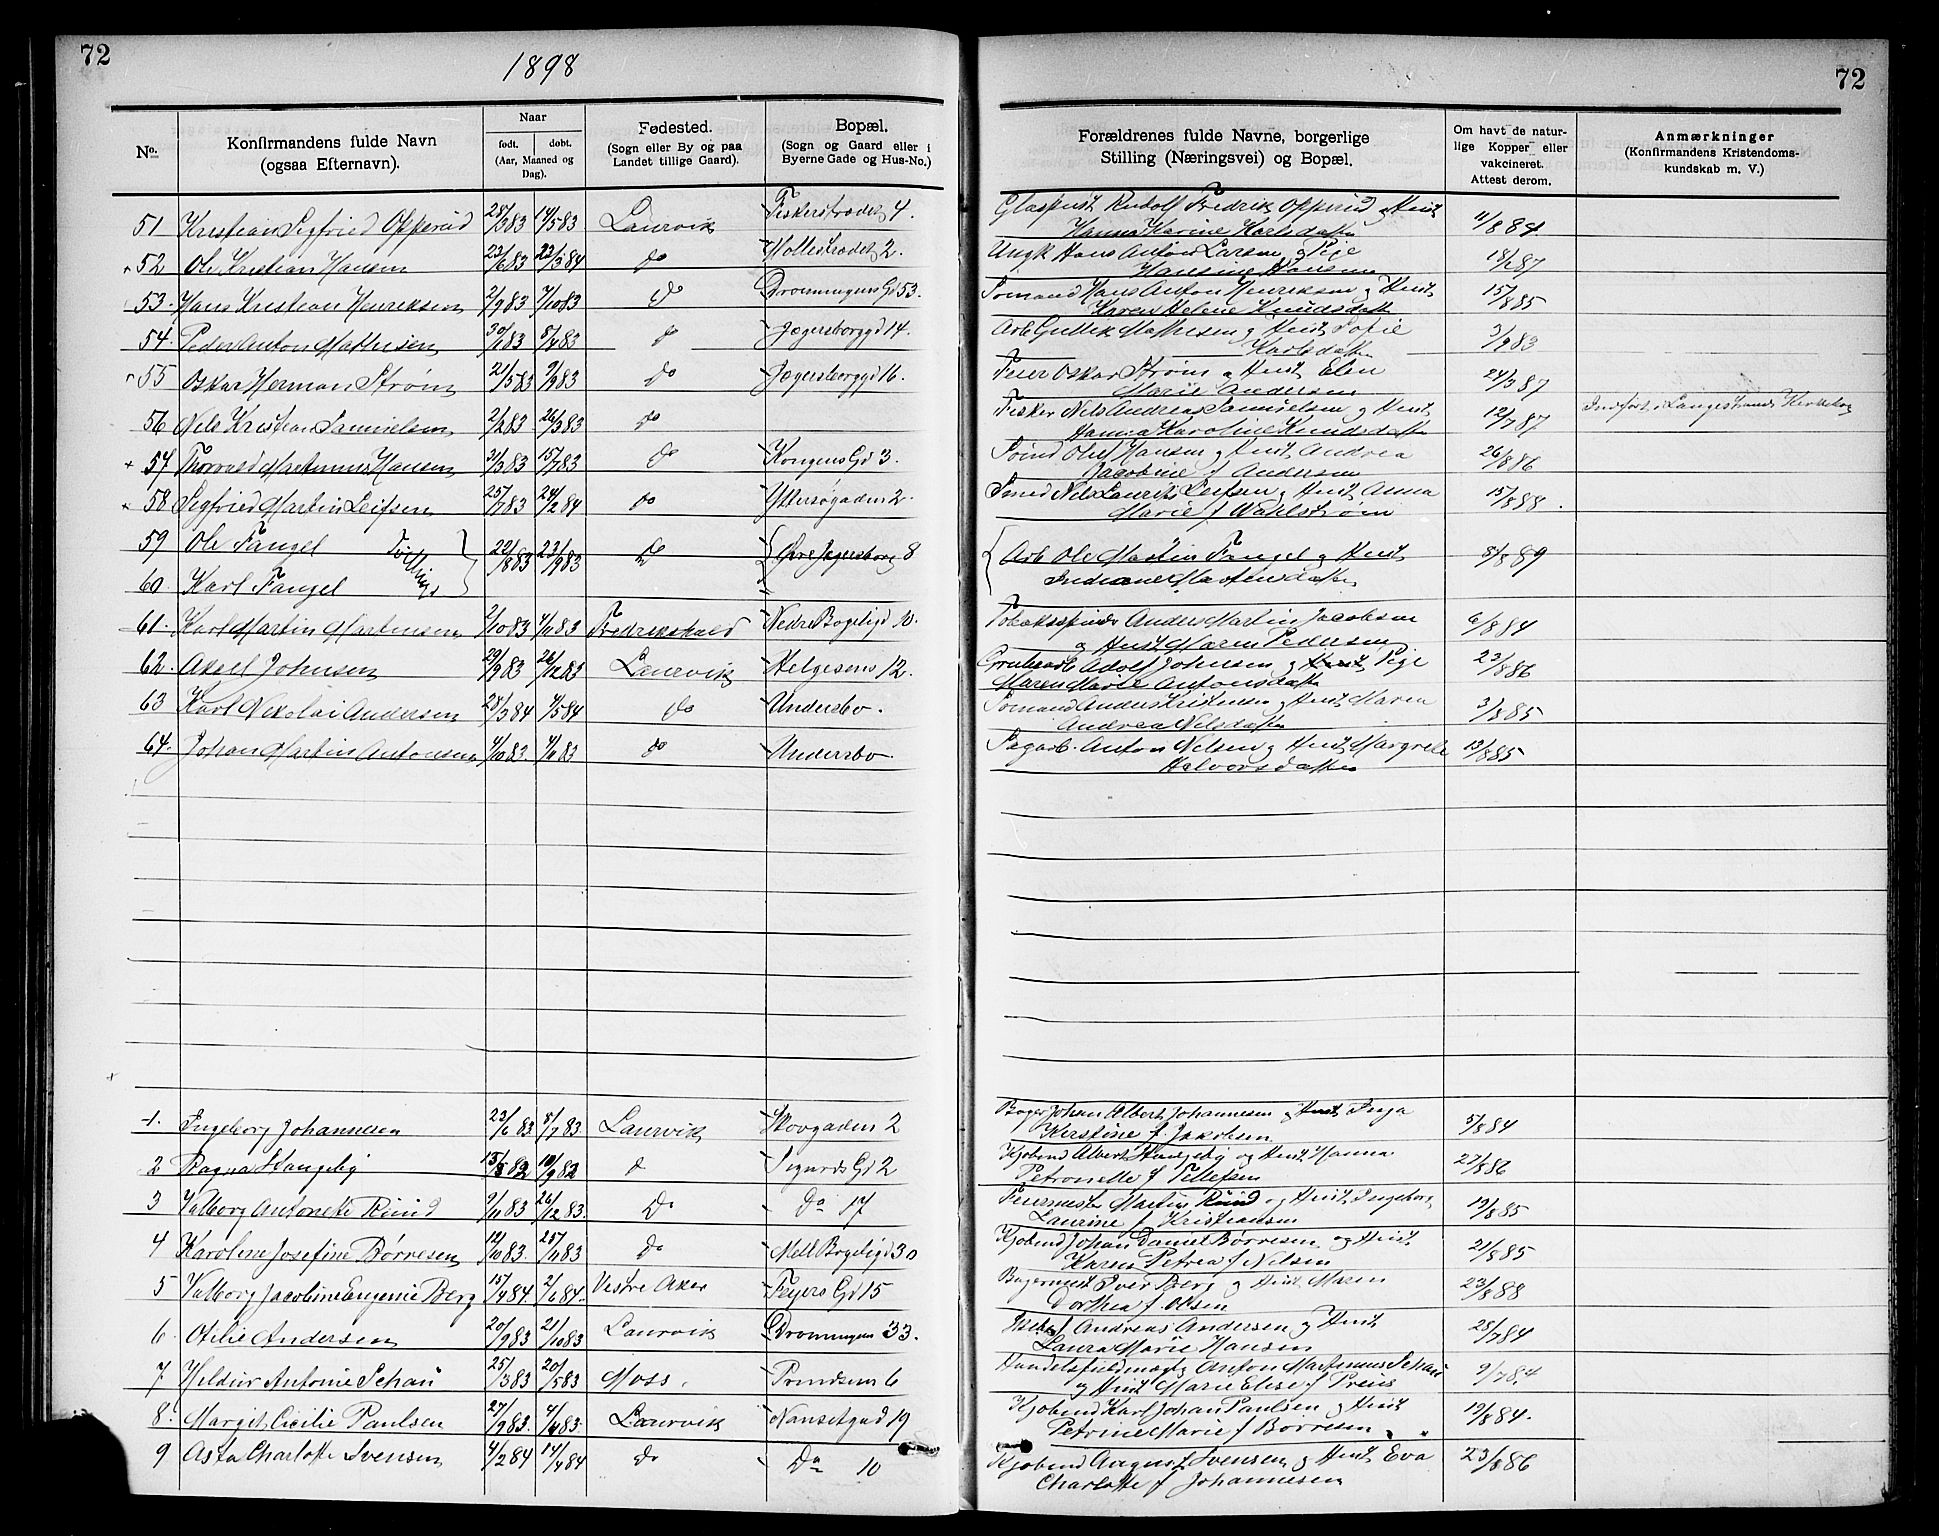 72
1898
72
No.
Konfirmandens fulde Navn
(ogsaa Efternavn).
Naar
født. døbt.
(Aar, Maaned og
Dag).
Fødested.
(Sogn eller By og paa
Landet tillige Gaard).
Bopæl.
(Sogn og Gaard eller i
Byerne Gade og Hus-No.)
Forældrenes fulde Navne, borgerlige
Stilling (Næringsvei) og Bopæl.
Om havt de natur-
lige Kopper eller
vakcineret.
Attest derom.
Anmærkninger
(Konfirmandens Kristendoms-
kundskab m. V.)
51 Kristian Sigfried Opperud 28/3 83 14/5 83 Laurvik Fiskerstrædet 4. Rudolf Fredrik Opperud og Hust 11/8 84
Hanna Karine Karlsdatter
52 Ole Kristian Hansen 23/6 83 23/3 84 do Mollestrædet 2. Ungk Hans Anton Larsen og Pige 18/ 87
Hansine Hansen
53. Hans Kristian Henriksen 2/9 83 7/10 83 do Dronningens Gd 53. Sømand Hans Anton Henriksen og Hust 15/8 85
Karen Helene Knudsdatter
54. Peder Anton Mathisen 30/1 83 8/4 83 do Jegersborggd 14. Arb Gullik Mathisen og Hust Sofie 3/9 83
Karlsdatter
55 Oskar Herman Strøm 21/5 83 9/9 83 do Jegersborggd 16. Feier Oskar Strøm og Hust Elen 24/3 87
Marie Andersen
56 Nils Kristian Samuelsen 2/2 83 26/3 83 do Fisker Nils Andreas Samuelsen og Hust 12/7 87 Indført i Langestrands Kirkebog
Hanna Karoline Knudsdatter
57 Thorvald Martinius Hansen 31/3 83 15/7 83 do Kongens Gd 3. Olaf Hansen og Hust Andrea 26/8 86
Jacobine f Andersen
58 Sigfried Martin Leifsen 25/7 83 24/2 84 do Yttersøgaden 2. Smed Nils Laurits Leifsen og Hust Anna 15/8 88.
Marie f Wahlstrøm
59 Ole Fangel Tvillinger 22/8 83 23/9 83 do Øvre Jegersborg 8 Arb Ole Martin Fangel og Hust 8/8 89
60. Karl Fangel " Indiane Martinsdatter
61. Karl Martin Martinsen 2/10 83 4/11 83 Fredrikshald Nedre Bøgeligd 10. Anders Martin Jacobsen 6/8 84
og Hust Maren Pedersen
62. Aksel Johnsen 29/9 83 26/12 83 Laurvik Helgesens 12. Adolf Johnsen og Pige 23/8 86
Maren Marie Antonsdatter
63 Karl Nikolai Andersen 28/3 84 4/5 84 do Undersbo. Sømand Anders Kristensen og Hust Maren 3/8 85
Andrea Nilsdatter
64. Johan Martin Antonsen 4/10 83. 4/11 83 do Undersbo. Sagarb. Anton Nilsen og Hust Margrete 13/8 85
Halvorsdatter
1. Ingeborg Johannesen 23/6 83. 8/7 83. Laurvik Skovgaden 2 Bager Johan Albert Johannesen og Hust Inga 5/8 84
Kerstine f. Jakobsen
2 Ragna Haugeby 82 10/9 82 do Sigurds Gd 2 Kjøbmd Albert Haugeby og Hust Hanna 27/8 86
Petronelle f Tellefsen
3 Valborg Antonette Ruud 9/11 83 26/12 83. do do 17 Martin Ruud og Hust Ingeborg 19/8 85
Laurine f Kristiansen
4 Karoline Josefine Børresen 12/10 83. 25/11 83 do Mell Bøgeligd 30 Kjøbmd Johan Daniel Børresen og Hust 21/8 85
Karen Petrea f Nilsen
5 Valborg Jacobine Eugenie Berg 15/4 84. 2/6 84. Vestre Aker Feyers Gd 15 Bagermest Iver Berg og Hust Maren 23/8 88
Dorthea f. Olsen
6. Otilie Andersen 20/9 83 21/10 83 Laurvik Dronningens 33. Andreas Andersen og Hust 28/7 84
Laura Marie Hansen
7 Heldur Antonie Schau 25/3 83 20/5 83 Moss. 6 Handelsfuldmægtig Anton Martinius Schau 9/7 84
og Hust Marie Elise f Preus
8. Margit Cicilie Paulsen 27/9 83. 4/11 83. Laurvik Nansetgad 19 Kjøbmd Karl Johan Paulsen og Hust 19/8 84.
Petrine Marie f Børresen
9 Asta Charlotte Svensen 4/2 84 14/4 84 do Do 10 Kjøbmd August Svensen og Hust Eva 23/8 86
Charlotte f Johannesen